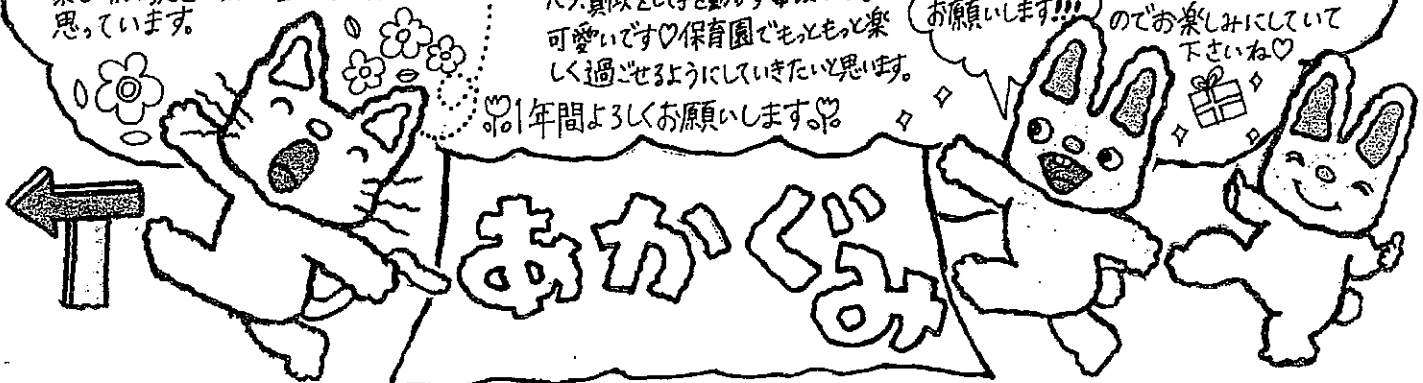 思っています。
可愛いです♡保育園でもっともっと楽
しく過ごせるようにしていきたいと思います。
1年間よろしくお願いします。
お願いします!!!
のでお楽しみにしていて
下さいね♡
あかぐみ